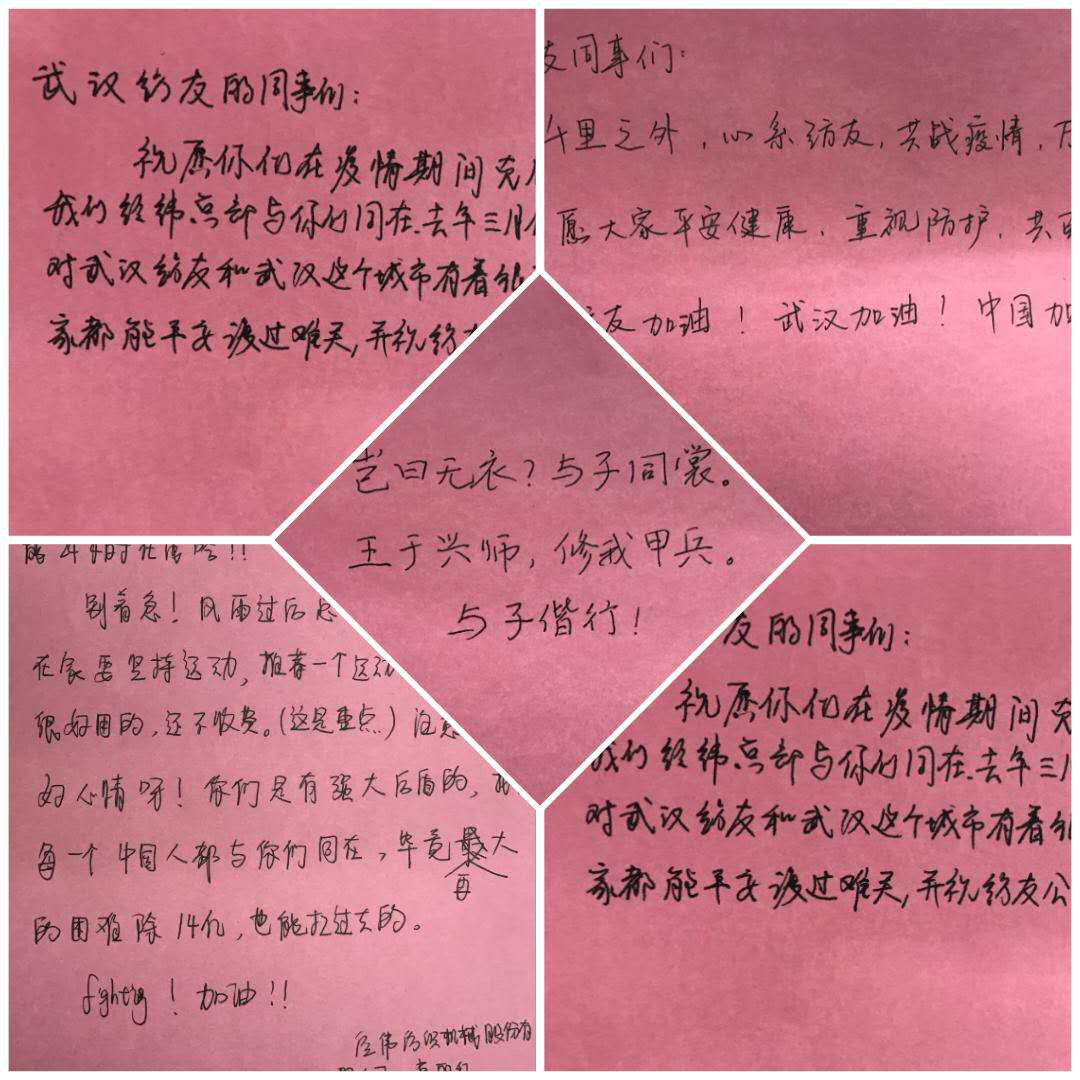 武汉纺友的同事们：
祝愿你们在疫情期间克
我们经纬点部与你们同在.去年三月
对武汉纺友和武汉这个城市有着
家都能平安渡过难关,并祝纺
友同事们：
千里之外，心系纺友，共战疫情，
愿大家平安健康，重视防护，共
友加油！武汉加油！中国加
岂曰无衣？与子同裳。
王于兴师，修我甲兵。
与子偕行！
别着急！风雨过后总
在家要坚持运动，推荐一个运动
很好用的，还不收费。（这是重点）注意
好心情呀！你们是有强大后盾的，
每一个中国人都与你们同在，毕竟再大
的困难除14亿，也能扛过去的。
fighting！加油！！
机械股份有
友的同事们：
祝愿你们在疫情期间克
我们经纬点部与你们同在.去年三月
对武汉纺友和武汉这个城市有着
家都能平安渡过难关,并祝纺友公